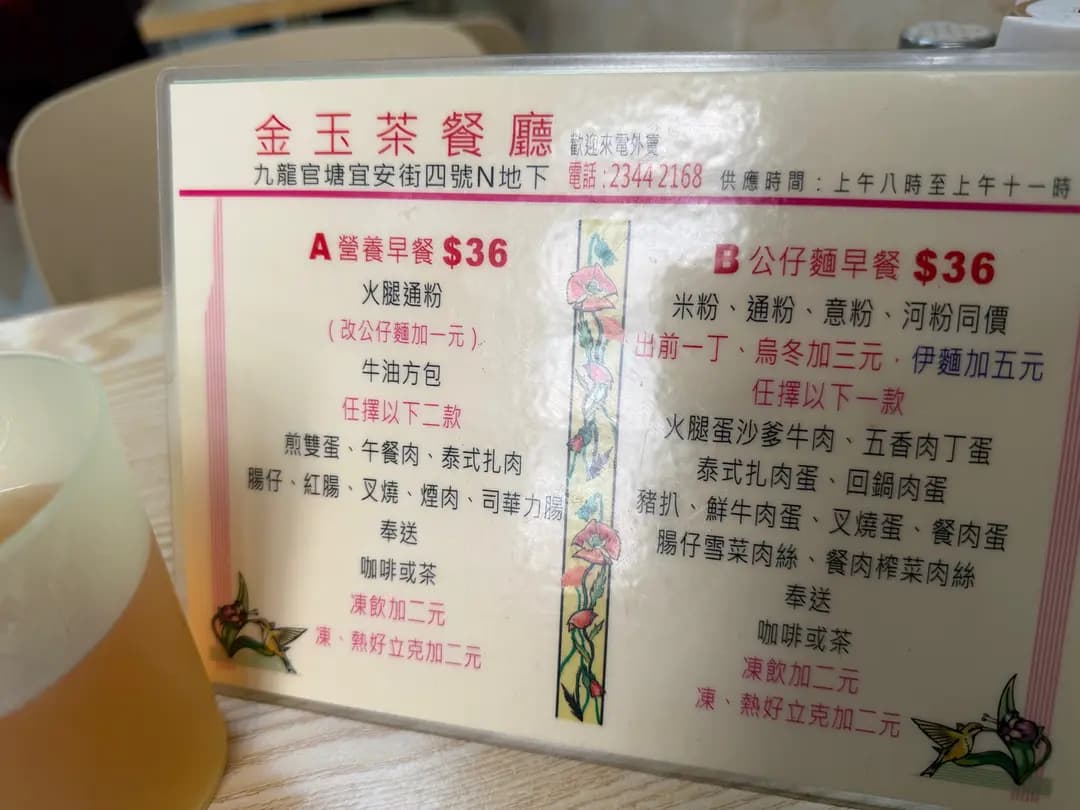 金玉茶餐廳 歡迎來電外賣
九龍官塘宜安街四號N地下 電話:2344 2168 供應時間:上午八時至上午十一時
A 營養早餐 $36
火腿通粉
(改公仔麵加一元)
牛油方包
任擇以下二款
煎雙蛋、午餐肉、泰式扎肉
腸仔、紅腸、叉燒、煙肉、司華力腸
奉送
咖啡或茶
凍飲加二元
凍、熱好立克加二元
B 公仔麵早餐 $36
米粉、通粉、意粉、河粉同價
出前一丁、烏冬加三元,伊麵加五元
任擇以下一款
火腿蛋沙爹牛肉、五香肉丁蛋
泰式扎肉蛋、回鍋肉蛋
豬扒、鮮牛肉蛋、叉燒蛋、餐肉蛋
腸仔雪菜肉絲、餐肉榨菜肉絲
奉送
咖啡或茶
凍飲加二元
凍、熱好立克加二元